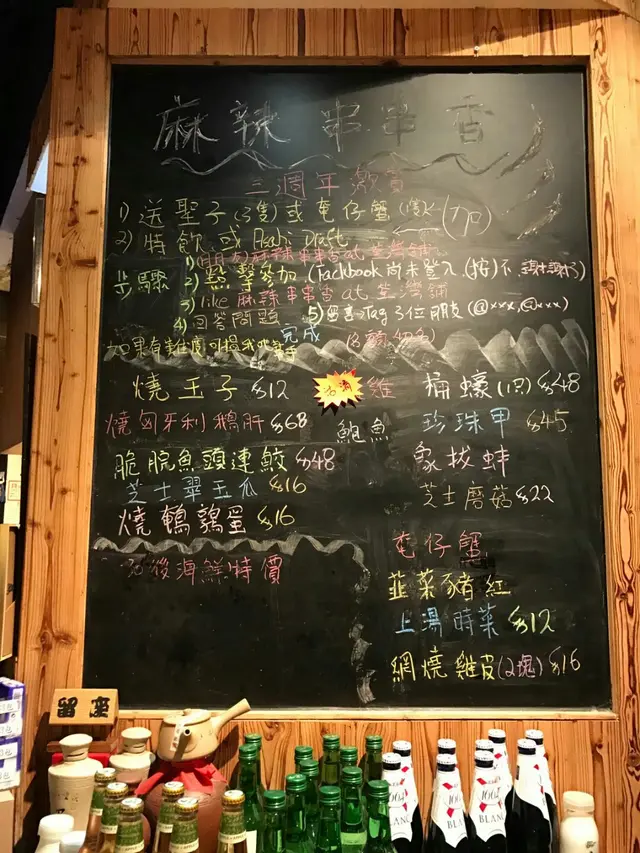 麻辣串串香
三週年激賞
1) 送聖子(3隻)或奄仔蟹(1隻)
(加)
2) 特飲或 Asahi Draft
步驟
麻辣串串香 at 荃灣舖
2) 點擊參加 (Facebook 尚未登入 (按)不
3) like 麻辣串串香 at 荃灣舖
4) 回答問題 5) 留言→Tag 3位朋友 (@xxx, @xxx)
完成
燒玉子 $12
燒匈牙利鵝肝 $68
脆脘魚頭連鮫 $48
芝士翠玉瓜 $16
燒鵪鶉蛋 $16
海鮮特價
雞
鮑魚
桶蠔(1只) $48
珍珠甲 $45
象拔蚌
芝士磨菇 $22
奄仔蟹
韮菜豬紅
上湯時菜 $12
網燒雞皮(2塊) $16
留座
1664
BLANC
1664
BLANC